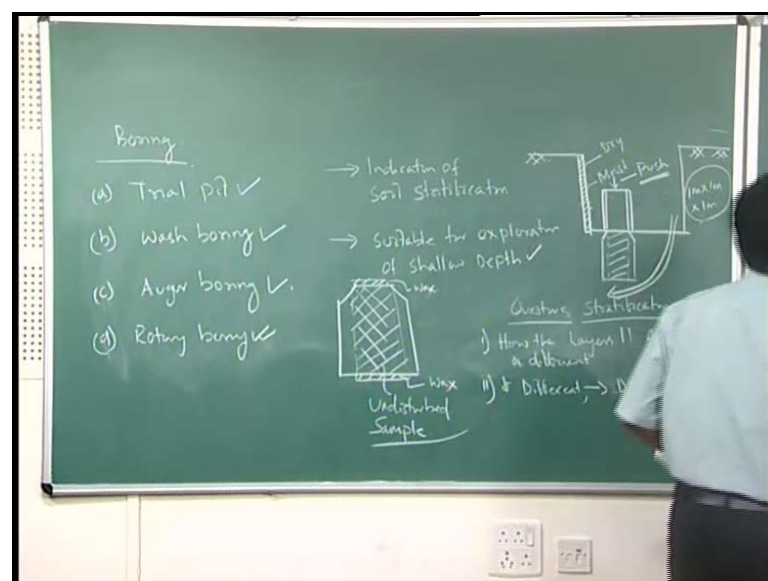 Boring
(a) Trial pit ✓
(b) Wash boring ✓
(c) Auger boring ✓.
(d) Rotary boring ✓
→ Indication of
soil stratification
→ Suitable for exploration
of shallow Depth ✓
Wax
Wax
Undisturbed
Sample
Dry
Moist
Push
1m x 1m
x 1m
Stratification
i) How the Layers 11
or different
ii) Different, →